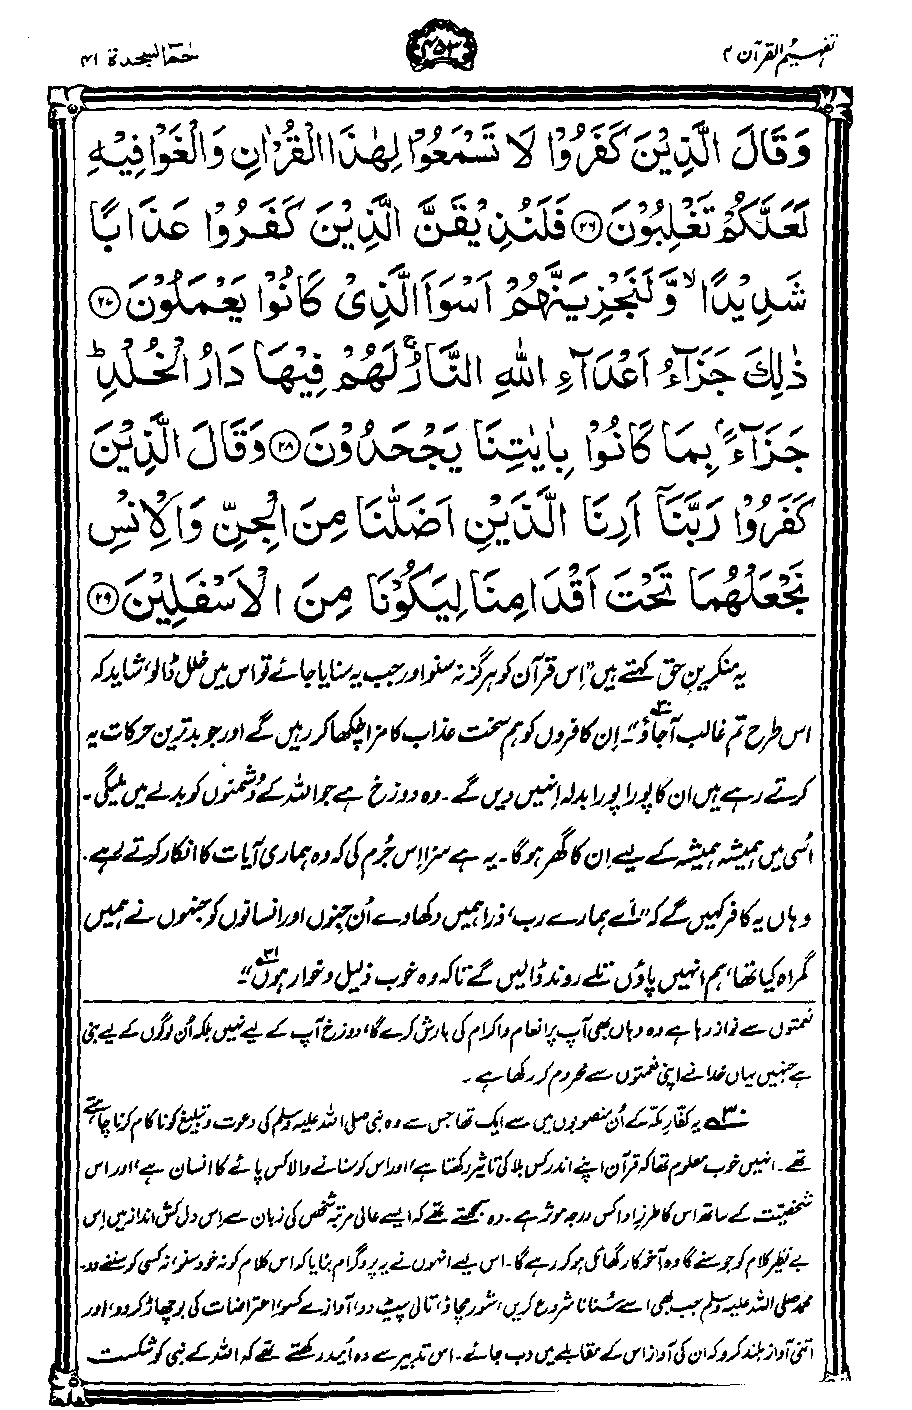 تفہیم القرآن ۴
۴۵۳
حٰمٓ السجدة ۴۱
وَقَالَ الَّذِيْنَ كَفَرُوْا لَا تَسْمَعُوْا لِهٰذَا الْقُرْاٰنِ وَالْغَوْا فِيْهِ
لَعَلَّكُمْ تَغْلِبُوْنَ ﴿۲۶﴾ فَلَنُذِيْقَنَّ الَّذِيْنَ كَفَرُوْا عَذَابًا
شَدِيْدًا ۙ وَّلَنَجْزِيَنَّهُمْ اَسْوَاَ الَّذِيْ كَانُوْا يَعْمَلُوْنَ ﴿۲۷﴾
ذٰلِكَ جَزَآءُ اَعْدَآءِ اللّٰهِ النَّارُ ۚ لَهُمْ فِيْهَا دَارُ الْخُلْدِ ؕ
جَزَآءًۢ بِمَا كَانُوْا بِاٰيٰتِنَا يَجْحَدُوْنَ ﴿۲۸﴾ وَقَالَ الَّذِيْنَ
كَفَرُوْا رَبَّنَآ اَرِنَا الَّذَيْنِ اَضَلّٰنَا مِنَ الْجِنِّ وَالْاِنْسِ
نَجْعَلْهُمَا تَحْتَ اَقْدَامِنَا لِيَكُوْنَا مِنَ الْاَسْفَلِيْنَ ﴿۲۹﴾
یہ منکرینِ حق کہتے ہیں ”اِس قرآن کو ہرگز نہ سنو اور جب یہ سنایا جائے تو اس میں خلل ڈالو، شاید کہ
اس طرح تم غالب آجاؤ“۳۰۔ اِن کافروں کو ہم سخت عذاب کا مزا چکھا کر رہیں گے اور جو بدترین حرکات یہ
کرتے رہے ہیں ان کا پورا پورا بدلہ اِنہیں دیں گے۔ وہ دوزخ ہے جو اللہ کے دُشمنوں کو بدلے میں ملیگی۔
اُسی میں ہمیشہ ہمیشہ کے لیے اِن کا گھر ہوگا۔ یہ ہے سزا اِس جُرم کی کہ وہ ہماری آیات کا انکار کرتے رہے۔
وہاں یہ کافر کہیں گے کہ ”اَے ہمارے رب، ذرا ہمیں دکھا دے اُن جِنوں اور انسانوں کو جنہوں نے ہمیں
گمراہ کیا تھا، ہم انہیں پاؤں تلے روند ڈالیں گے تاکہ وہ خوب ذلیل و خوار ہوں“۳۱
نعمتوں سے نواز رہا ہے وہ وہاں بھی آپ پر انعام و اکرام کی بارش کرے گا، دوزخ آپ کے لیے نہیں بلکہ اُن لوگوں کے لیے بنی
ہے جنہیں یہاں خدا نے اپنی نعمتوں سے محروم کر رکھا ہے۔
۳۰ یہ کفارِ مکہ کے اُن منصوبوں میں سے ایک تھا جس سے وہ نبی صلی اللہ علیہ وسلم کی دعوت و تبلیغ کو ناکام کرنا چاہتے
تھے۔ انہیں خوب معلوم تھا کہ قرآن اپنے اندر کس بلا کی تاثیر رکھتا ہے، اور اس کو سنانے والا کس پائے کا انسان ہے، اور اس
شخصیّت کے ساتھ اس کا طرزِ ادا کس درجہ مؤثر ہے۔ وہ سمجھتے تھے کہ ایسے عالی مرتبہ شخص کی زبان سے اِس دل کش انداز میں اِس
بے نظیر کلام کو جو سنے گا وہ آخر کار گھائل ہو کر رہے گا۔ اس لیے انہوں نے یہ پروگرام بنایا کہ اس کلام کو نہ خود سنو، نہ کسی کو سننے دو۔
محمد صلی اللہ علیہ وسلم جب بھی اسے سُنانا شروع کریں، شور مچاؤ، تالی پیٹ دو، آوازے کسو، اعتراضات کی بوچھاڑ کر دو، اور
اتنی آواز بلند کرو کہ ان کی آواز اس کے مقابلے میں دب جائے۔ اس تدبیر سے وہ اُمید رکھتے تھے کہ اللہ کے نبی کو شکست